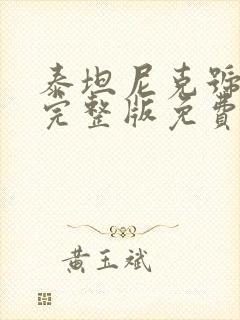 泰坦尼克號
完整版免費
黃玉斌